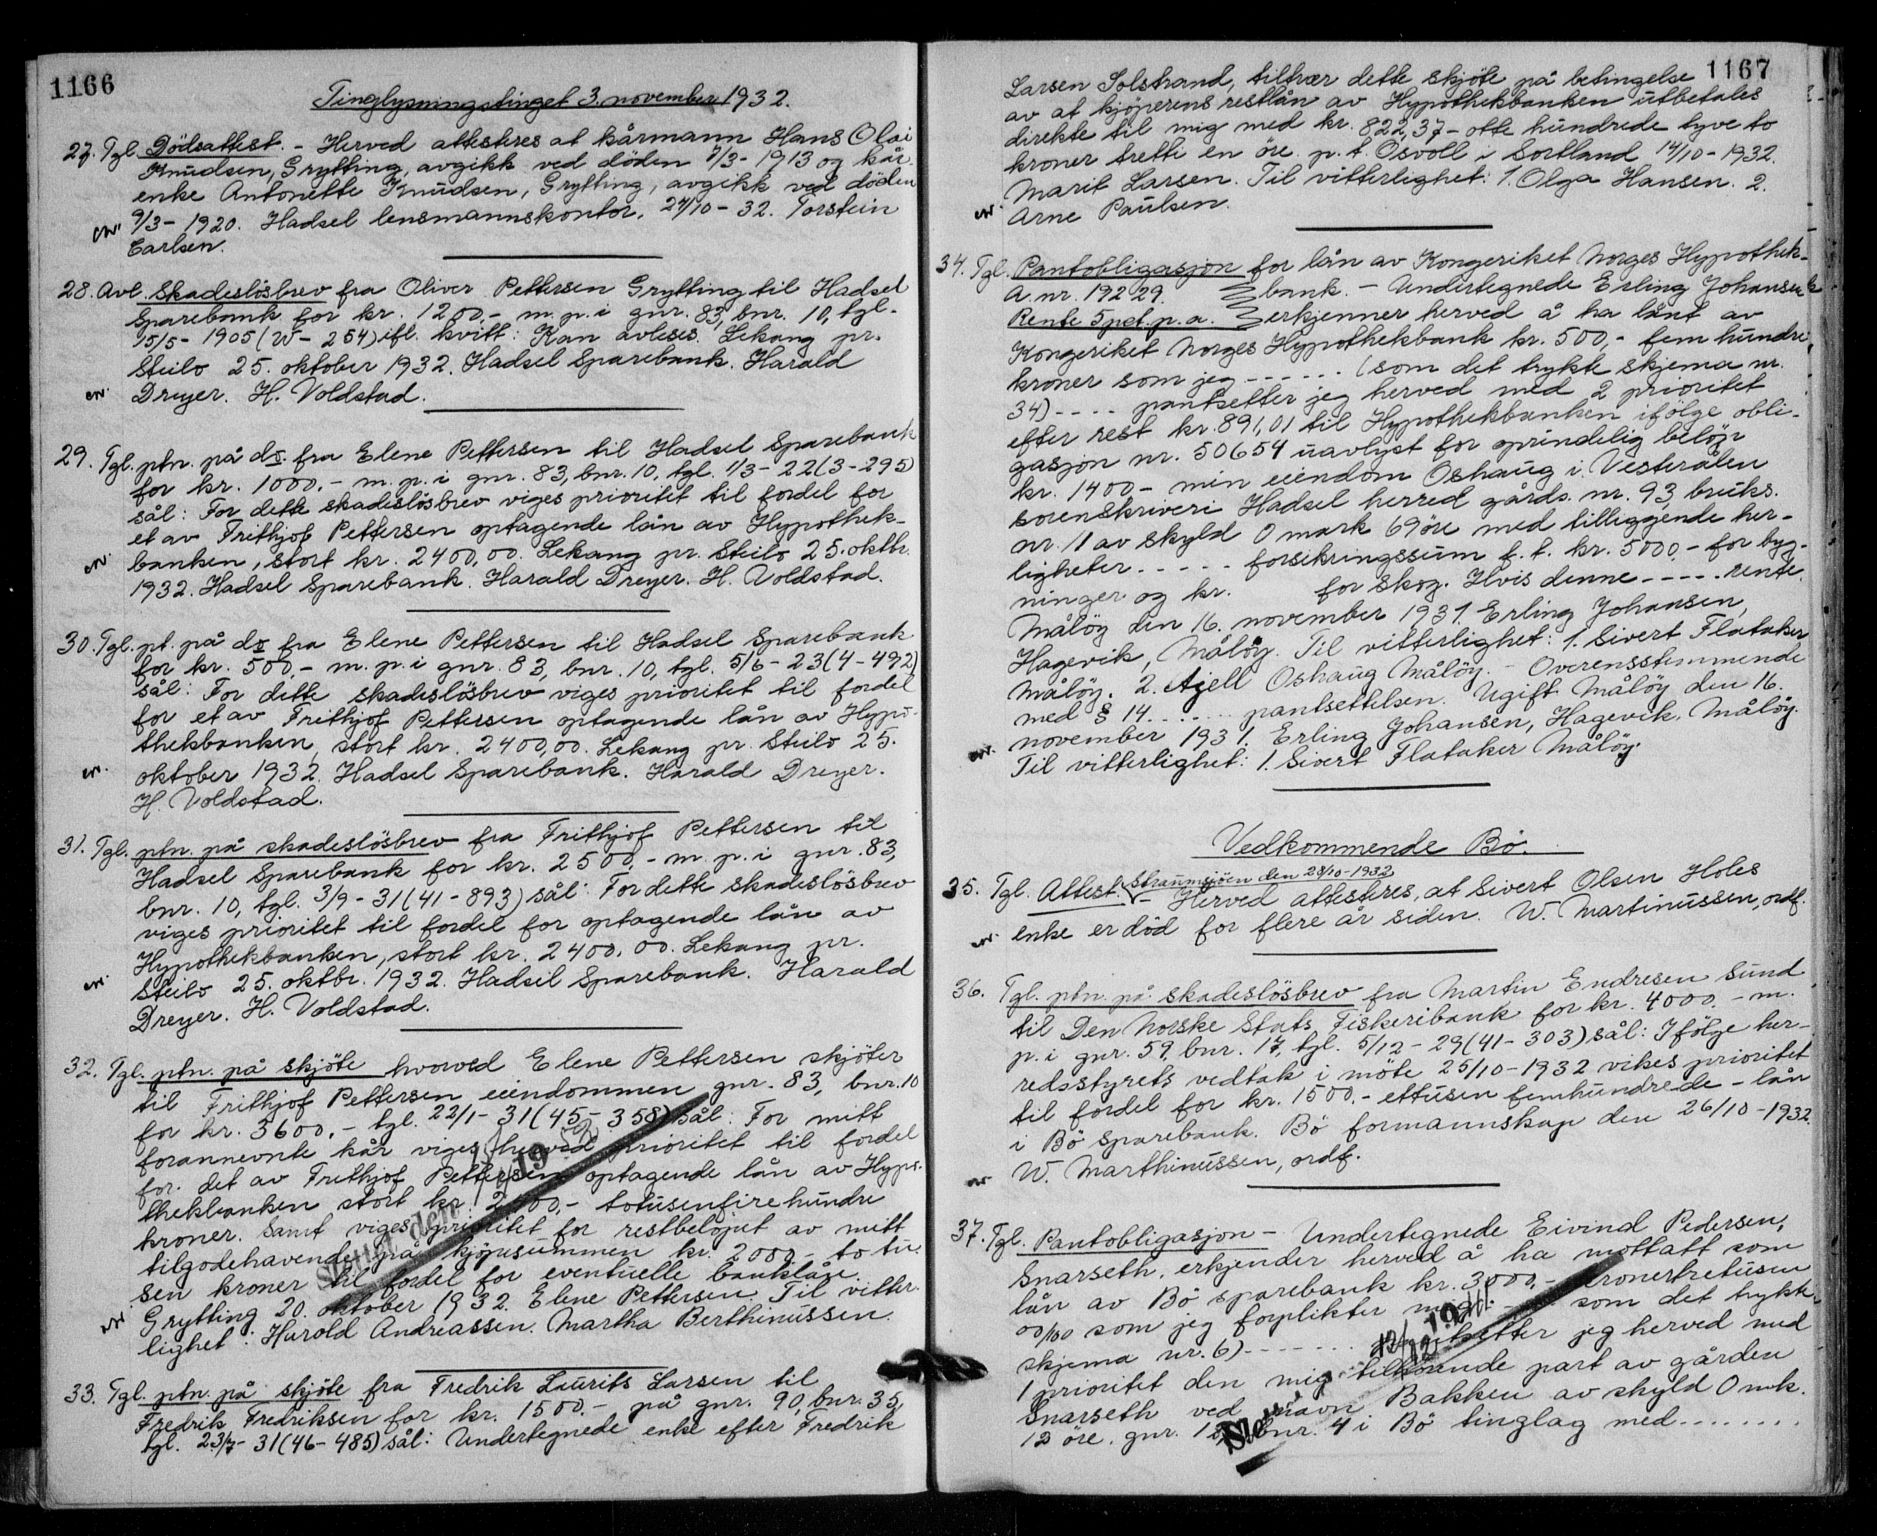 1166
Tinglysningstinget 3. november 1932.
27. Tgl. Dödsattest. - Herved attesteres at kårmann Hans Olai
Knudsen, Grytting, avgikk ved döden 7/3- 1913 og kår
enke Antonette Knudsen, Grytting, avgikk ved döden
9/3- 1920. Hadsel lensmannskontor, 24/10 - 32. Torstein
Carlsen.
28. Avl. Skadeslösbrev fra Oliver Pettersen Grytting til Hadsel
Sparebank for kr. 1200,- m. p. i gnr. 83, bnr. 10, tgl.
15/5- 1905 (W- 254) ifl. kvitt: Kan avleses. Lekang pr.
Steilo 25. oktober 1932. Hadsel Sparebank. Harald
Dreyer. H. Voldstad.
29. Tgl. ptn. på do. fra Elene Pettersen til Hadsel Sparebank
for kr. 1000.- m. p. i gnr. 83, bnr. 10, tgl. 1/3- 22 (3-295)
sål: For dette skadeslösbrev viges prioritet til fordel for
et av Frithjof Pettersen optagende lån av Hypothek-
banken, stort kr. 2400,00. Lekang pr. Steilo 25. oktbr.
1932. Hadsel Sparebank. Harald Dreyer. H. Voldstad.
30. Tgl. pt. på do fra Elene Pettersen til Hadsel Sparebank
for kr. 500,- m. p. i gnr. 83, bnr. 10, tgl. 5/6- 23 (4-492)
sål: For dette skadeslösbrev viges prioritet til fordel
for et av Frithjof Pettersen optagende lån av Hypo-
thekbanken, stort kr. 2400,00. Lekang pr. Steilo 25.
oktober 1932. Hadsel Sparebank. Harald Dreyer.
H. Voldstad.
31. Tgl. ptn. på skadeslösbrev fra Frithjof Pettersen til
Hadsel Sparebank for kr. 2500,- m. p. i gnr. 83,
bnr. 10, tgl. 3/9- 31 (41-893) sål: For dette skadeslösbrev
viges prioritet til fordel for optagende lån av
Hypothekbanken, stort kr. 2400,00. Lekang pr.
Steilo 25. oktbr. 1932. Hadsel Sparebank. Harald
Dreyer. H. Voldstad.
32. Tgl. ptn. på skjöte hvorved Elene Pettersen skjöter
til Frithjof Pettersen eiendommen gnr. 83, bnr. 10
for kr. 3600.- tgl. 22/1- 31 (45-358) sål: For mitt
forannevnte kår viges herved prioritet til fordel
for det av Frithjof Pettersen optagende lån av Hypo-
thekbanken stort kr. 2400,- totusenfirehundre
kroner. Samt viges prioritet for restbelöpet av mitt
tilgodehavende på kjöpesummen kr. 2000- to tu-
sen kroner til fordel for eventuelle banklån.
Grytting 20. oktober 1932. Elene Pettersen. Til vitter-
lighet: Harold Andreassen. Martha Berthinussen.
33. Tgl. ptn. på skjöte fra Fredrik Laurits Larsen til
Fredrik Fredriksen for kr. 1500.- på gnr. 90, bnr. 35,
tgl. 23/7- 31 (46-485) sål: Undertegnede enke efter Fredrik
1167
Larsen Solstrand, tiltrær dette skjöte på betingelse
av at kjöperens restlån av Hypothekbanken utbetales
direkte til mig med kr. 822,37- otte hundrede tyve to
kroner tretti en öre. p. t. Osvoll i Sortland 14/10- 1932.
Marit Larsen. Til vitterlighet: 1. Olga Hansen. 2.
Arne Paulsen.
34. Tgl. Pantobligasjon for lån av Kongeriket Norges Hypothek-
A nr. 19229. bank. - Undertegnede Erling Johansen
Rente 5 pct. p. a. erkjenner herved å ha lånt av
Kongeriket Norges Hypothekbank kr. 500,- fem hundre
kroner som jeg ------ (som det trykte skjema nr.
34) ---- pantsetter jeg herved med 2 prioritet
efter rest kr. 891,01 til Hypothekbanken ifölge obli-
gasjon nr. 50654 uavlyst for oprindelig belöp
kr. 1400- min eiendom Oshaug i Vesterålen
sorenskriveri Hadsel herred gårds. nr. 93, bruks.
nr. 11 av skyld 0 mark 69 öre med tilliggende her-
ligheter ----- forsikringssum f. t. kr. 5000,- for byg-
ninger og kr. for skog. Hvis denne ----- rente.
Målöy den 16. november 1931. Erling Johansen,
Hagevik, Målöy. Til vitterlighet: 1. Sivert Flataker
Målöy. 2. Oshaug Målöy. - Overensstemmende
med § 14 ....... pantsettelsen. Ugift. Målöy den 16.
november 1931. Erling Johansen, Hagevik, Målöy.
Til vitterlighet: 1. Sivert Flataker Målöy.
Vedkommende Bö.
Straumsjöen den 28/10-1932
35. Tgl. Attest. - Herved attesteres, at Sivert Olsen Holes
enke er död for flere år siden. W. Martinussen, ordf.
36. Tgl. ptn. på skadeslösbrev fra Martin Endresen Sund
til Den Norske Stats Fiskeribank for kr. 4000.- m.
p. i gnr. 59, bnr. 17, tgl. 5/12- 29 (41-303) sål: Ifölge her-
redsstyrets vedtak i möte 25/10- 1932 vikes prioritet
til fordel for kr. 1500.- ettusen femhundrede - lån
i Bö Sparebank. Bö formannskap den 26/10-1932.
W. Marthinussen, ordf.
37. Tgl. Pantobligasjon - Undertegnede Eivind Pedersen,
Snarseth, erkjender herved å ha mottatt som
lån av Bö sparebank kr. 3000,- kronertretusen
00/100 som jeg forplikter som det trykte
skjema nr. 6) ------- pantsetter jeg herved med
1 prioritet den mig tilhörende part av gården
Snarseth ved navn Bakken av skyld 0 mk.
12 öre. gnr. bnr. 4 i Bö tinglag med ........